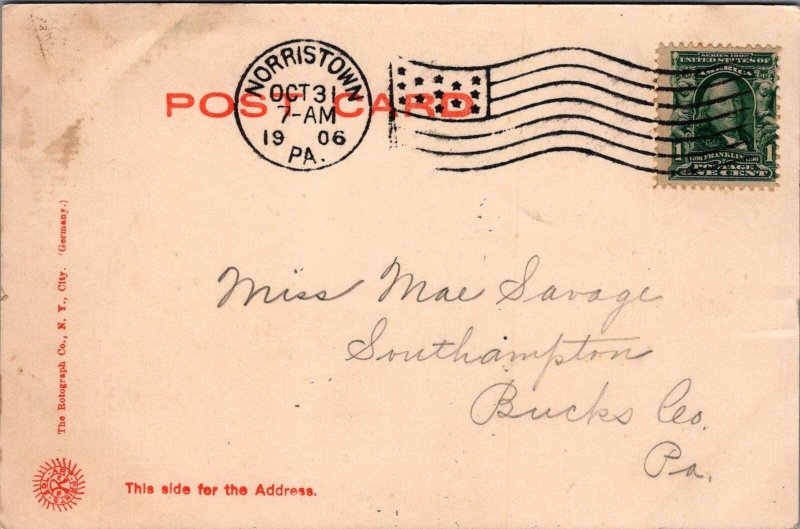 POST CARD
NORRISTOWN
OCT 31
7-AM
1906
PA.
SERIES 1902
UNITED STATES OF
AMERICA
1706 FRANKLIN 1790
1 1
POSTAGE
ONE CENT
Miss Mae Savage
Southampton
Bucks Co.
Pa.
The Rotograph Co., N. Y., City. (Germany.)
This side for the Address.